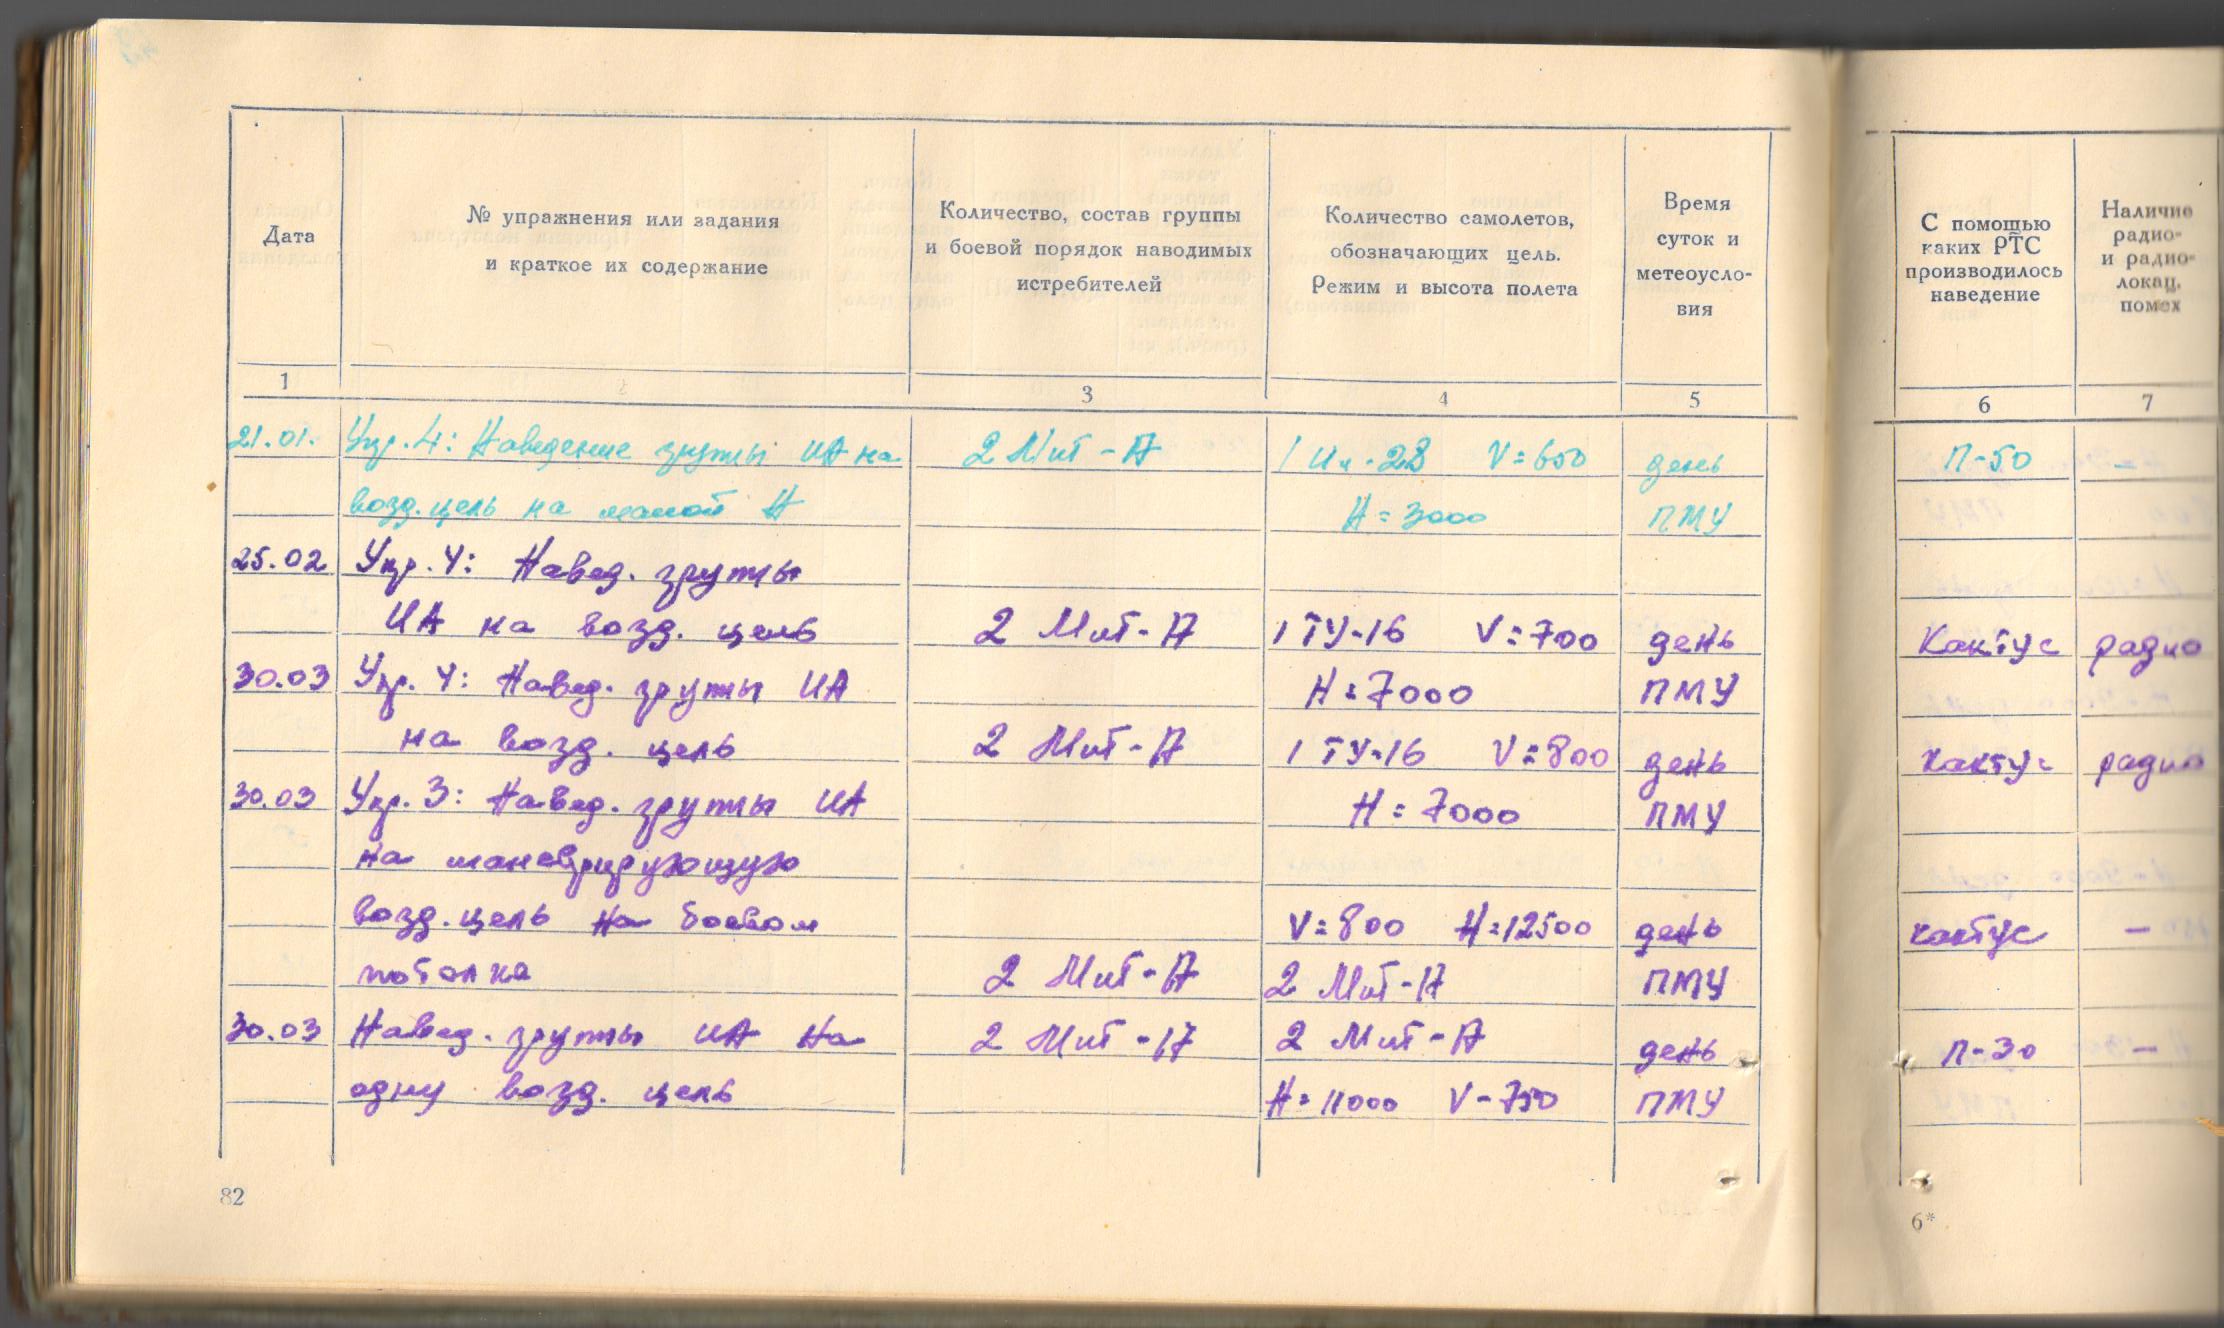 Дата
№ упражнения или задания
и краткое их содержание
Количество, состав группы
и боевой порядок наводимых
истребителей
Количество самолетов,
обозначающих цель.
Режим и высота полета
Время
суток и
метеоусло-
вия
С помощью
каких РТС
производилось
наведение
Наличие
радио-
и радио-
локац.
помех
1 2 3 4 5 6 7
21.01. Упр. 4: Наведение группы ИА на 2 МиГ-17 1 Ил-28 V=650 день П-50 -
возд. цель на малой H H=3000 ПМУ
25.02 Упр. 4: Навед. группы
ИА на возд. цель 2 МиГ-17 1 ТУ-16 V=700 день Кактус радио
30.03 Упр. 4: Навед. группы ИА H=7000 ПМУ
на возд. цель 2 МиГ-17 1 ТУ-16 V=800 день кактус радио
30.03 Упр. 3: Навед. группы ИА H=7000 ПМУ
на маневрирующую
возд. цель на боевом V=800 H=12500 день кактус -
потолке 2 МиГ-17 2 МиГ-17 ПМУ
30.03 Навед. группы ИА на 2 МиГ-17 2 МиГ-17 день П-30 -
одну возд. цель H=11000 V-750 ПМУ
82
6*